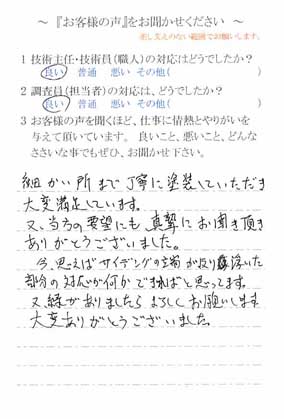 ～『お客様の声』をお聞かせください～
差し支えのない範囲でお願いします。
1 技術主任・技術員(職人)の対応はどうでしたか？
良い 普通 悪い その他( )
2 調査員(担当者)の対応は、どうでしたか？
良い 普通 悪い その他( )
3 お客様の声を聞くほど、仕事に情熱とやりがいを
与えて頂いています。 良いこと、悪いこと、どんな
ささいな事でもぜひ、お聞かせ下さい。
細かい所まで丁寧に塗装していただき
大変満足しています。
又、当方の要望にも真摯にお聞き頂き
ありがとうございました。
今、思えばサイディングの立端が反り浮いた
部分の対応が何かできればと思ってます。
又縁がありましたらよろしくお願いします
大変ありがとうございました。